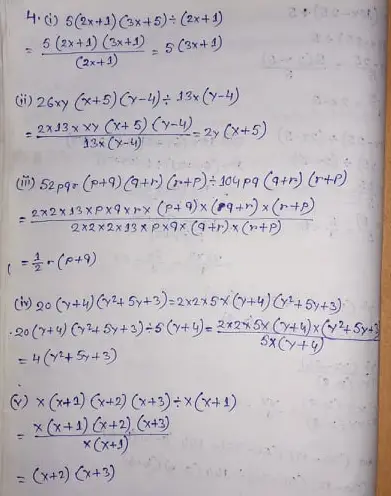 4. (i) 5(2x+1)(3x+5)÷(2x+1)
= 5(2x+1)(3x+1)/(2x+1) = 5(3x+1)
(ii) 26xy(x+5)(y-4)÷13x(y-4)
= 2×13×xy(x+5)(y-4)/13x(y-4) = 2y(x+5)
(iii) 52pqr(p+q)(q+r)(r+p)÷104pq(q+r)(r+p)
= 2×2×13×p×q×r×(p+q)×(q+r)×(r+p)/2×2×2×13×p×q×(q+r)×(r+p)
= 1/2 r(p+q)
(iv) 20(y+4)(y²+5y+3)=2×2×5×(y+4)(y²+5y+3)
20(y+4)(y²+5y+3)÷5(y+4)=2×2×5×(y+4)×(y²+5y+3)/5×(y+4)
= 4(y²+5y+3)
(v) x(x+1)(x+2)(x+3)÷x(x+1)
= x(x+1)(x+2)(x+3)/x(x+1)
= (x+2)(x+3)